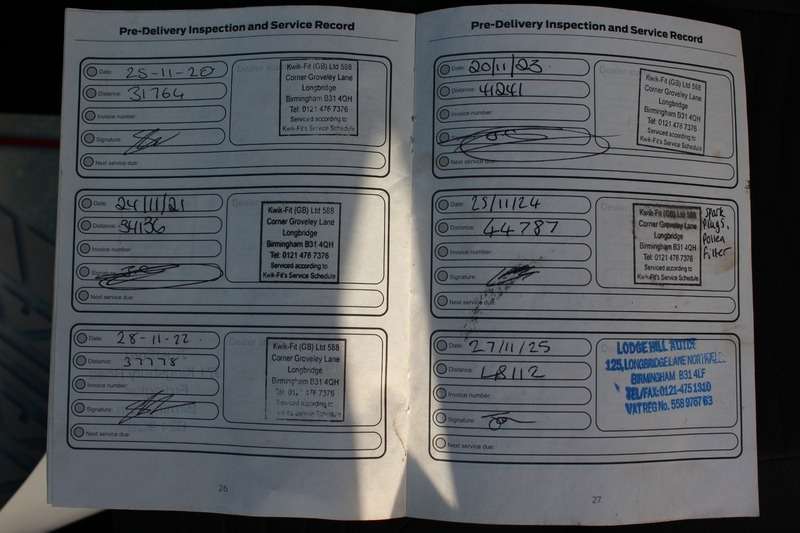 Pre-Delivery Inspection and Service Record
Date: 25-11-20
Distance: 31764
Invoice number:
Signature:
Next service due:
Kwik-Fit (GB) Ltd 588
Corner Groveley Lane
Longbridge
Birmingham B31 4QH
Tel: 0121 476 7376
Serviced according to
Kwik-Fit's Service Schedule
Date: 24/11/21
Distance: 34136
Invoice number:
Signature:
Next service due:
Kwik-Fit (GB) Ltd 588
Corner Groveley Lane
Longbridge
Birmingham B31 4QH
Tel: 0121 476 7376
Serviced according to
Kwik-Fit's Service Schedule
Date: 28-11-22
Distance: 37778
Invoice number:
Signature:
Next service due:
Kwik-Fit (GB) Ltd 588
Corner Groveley Lane
Longbridge
Birmingham B31 4QH
Tel: 0121 476 7376
Serviced according to
Kwik-Fit's Service Schedule
26
Pre-Delivery Inspection and Service Record
Date: 20/11/23
Distance: 41241
Invoice number:
Next service due:
Kwik-Fit (GB) Ltd 588
Corner Groveley Lane
Longbridge
Birmingham B31 4QH
Tel: 0121 476 7376
Serviced according to
Kwik-Fit's Service Schedule
Date: 25/11/24
Distance: 44787
Invoice number:
Signature:
Next service due:
Kwik-Fit (GB) Ltd 588
Corner Groveley Lane
Longbridge
Birmingham B31 4QH
Tel: 0121 476 7376
Serviced according to
Kwik-Fit's Service Schedule
Spark
Plugs,
Pollen
Filter
Date: 27/11/25
Distance: 48112
Invoice number:
Signature:
Next service due:
LODGE HILL AUTOS
125, LONGBRIDGE LANE NORTHFIELD
BIRMINGHAM B31 4LF
TEL/FAX: 0121-475 1310
VAT REG No. 558 9767 63
27